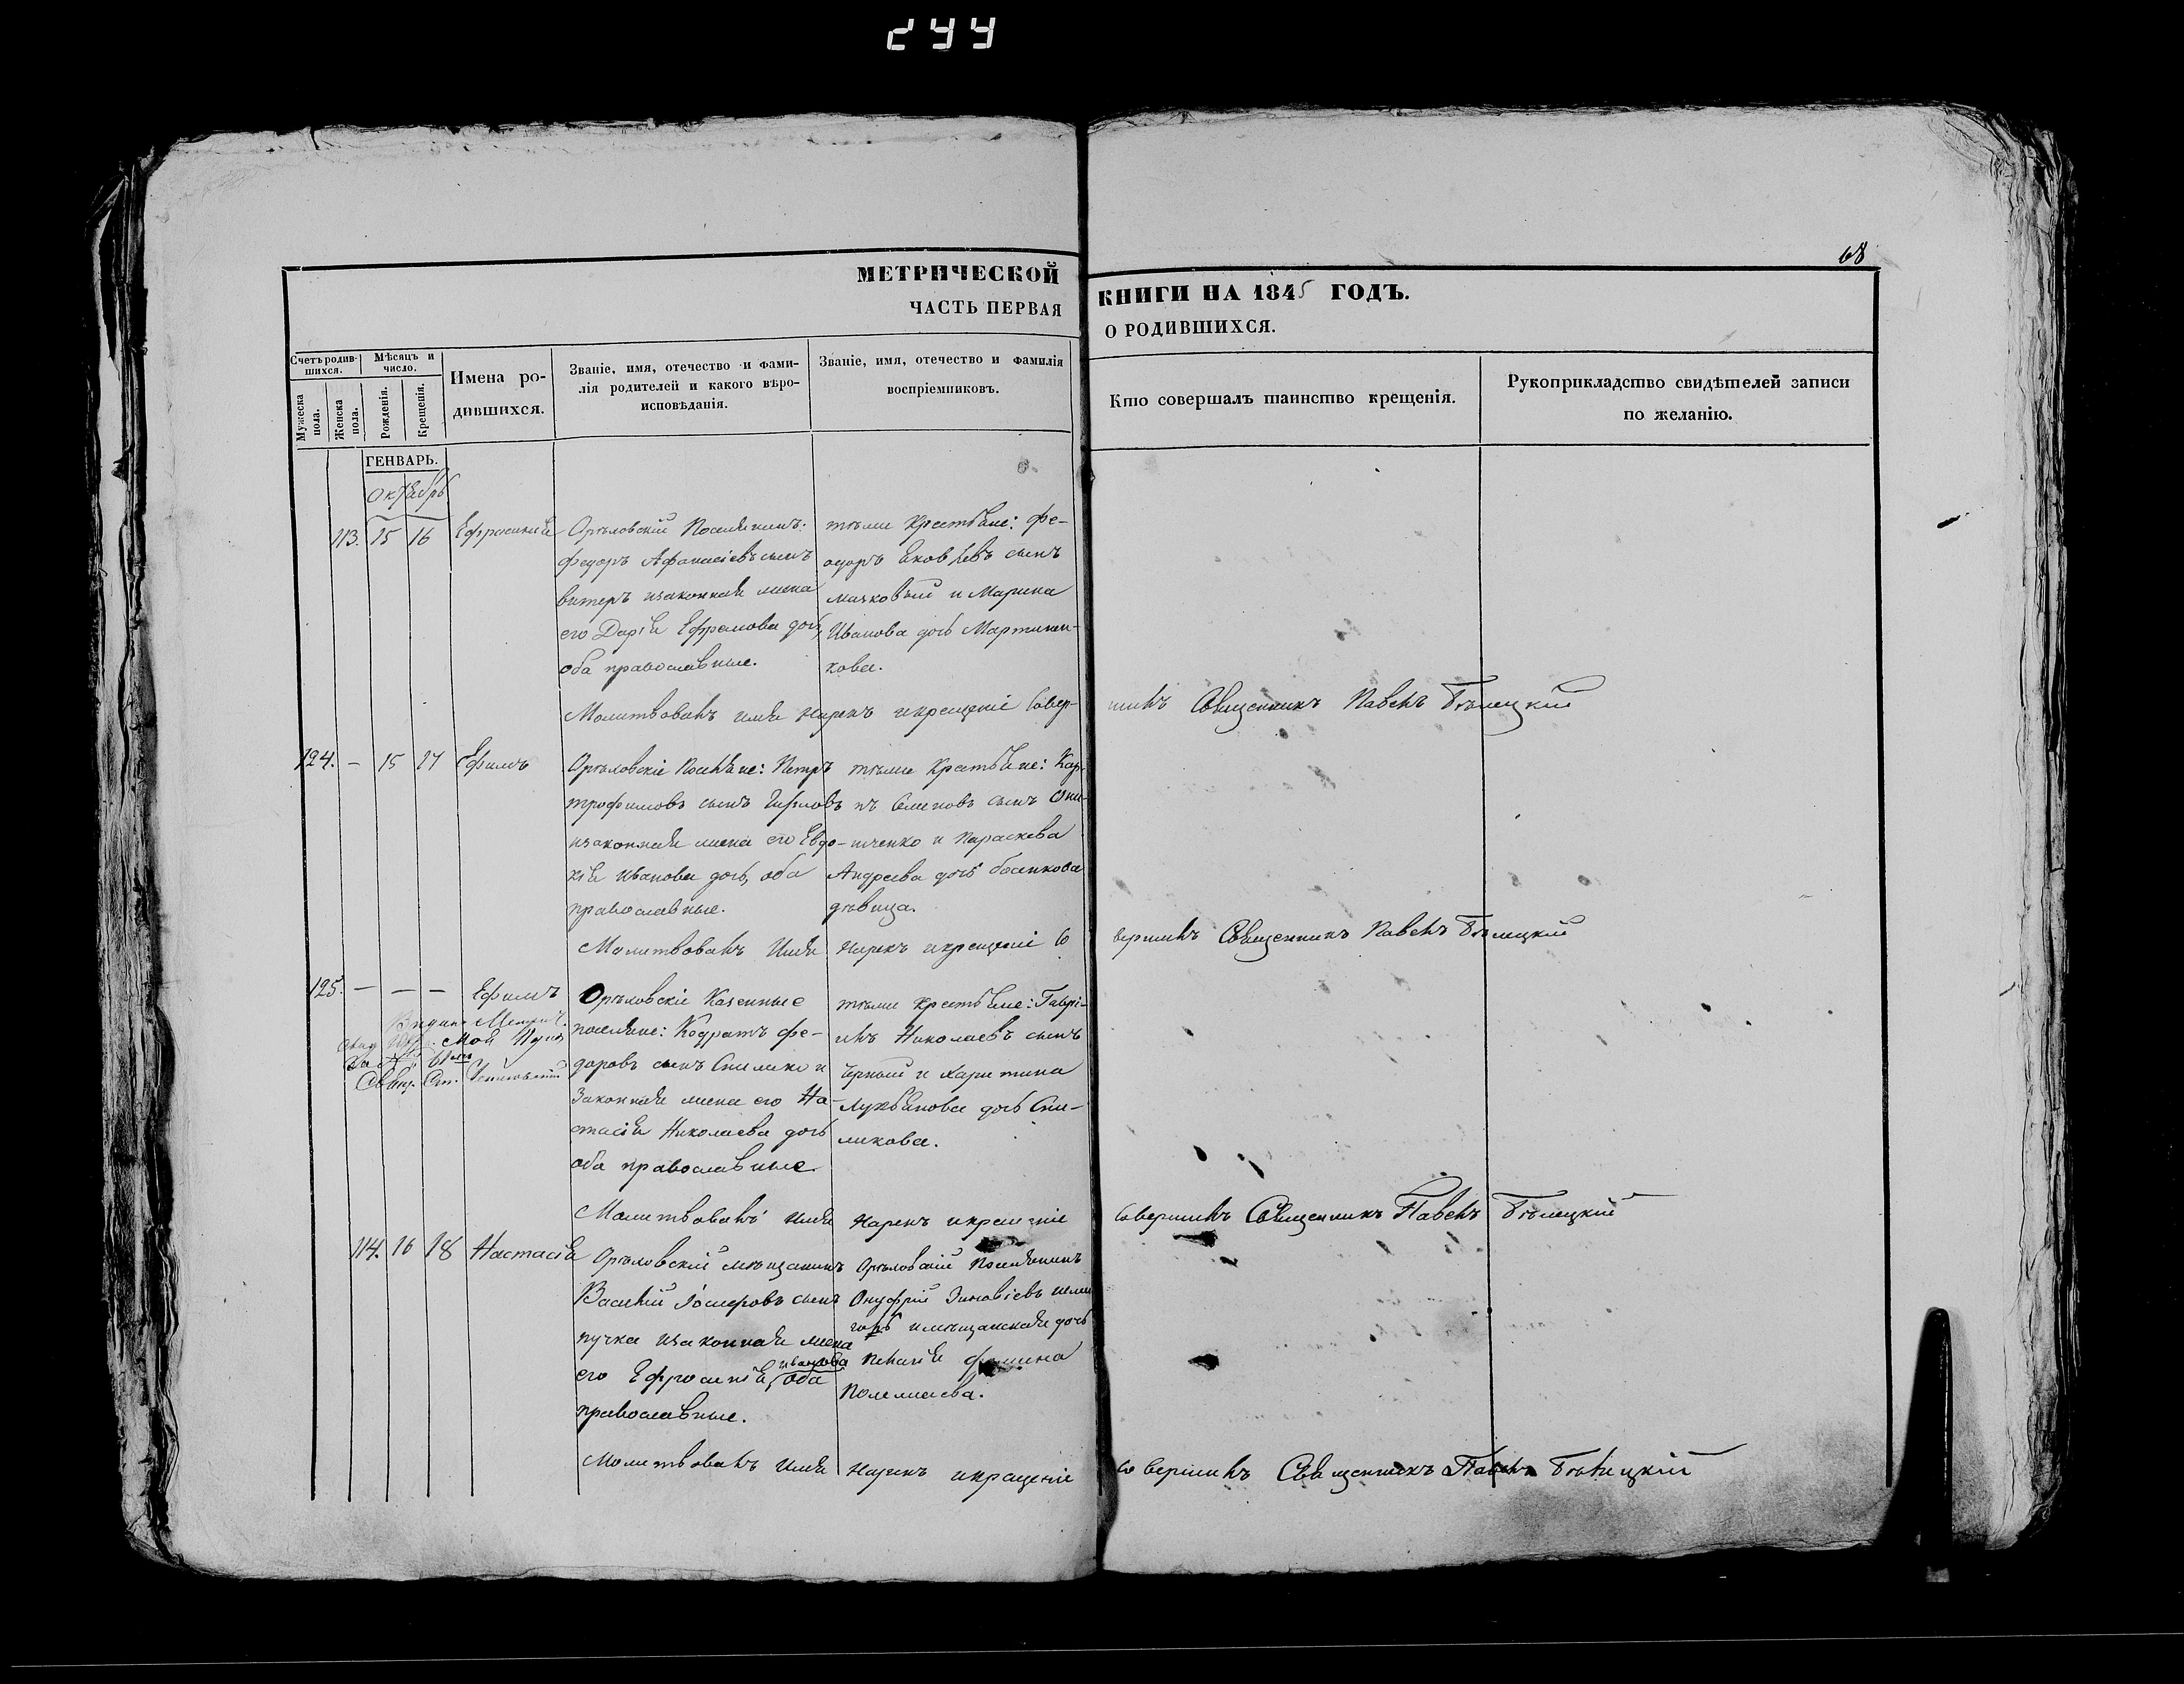 244
68
МЕТРИЧЕСКОЙ
КНИГИ НА 1845 ГОДЪ.
ЧАСТЬ ПЕРВАЯ
О РОДИВШИХСЯ.
Счетъ родившихся.
Мужеска пола.
Женска пола.
Мѣсяцъ и число.
Рожденія.
Крещенія.
Имена родившихся.
Званіе, имя, отечество и фами-
лія родителей и какого вѣро-
исповѣданія.
Званіе, имя, отечество и фамилія
воспріемниковъ.
Кто совершалъ таинство крещенія.
Рукоприкладство свидѣтелей записи
по желанію.
ГЕНВАРЬ.
Октябрь
113. 15 16 Ефросинія
Орѣловскій Поселянинъ:
Федоръ Афанасіевъ сынъ
изаконная жена
его Дарія Ефремова дочь,
оба православные.
тѣже Крестьяне: Фе-
одоръ Яковлевъ сынъ
и Марина
Иванова дочь Мартинен-
кова.
Молитвовалъ имя нарекъ икрещеніе совер-
шилъ Священникъ Павелъ Бѣлецкій
124. — 15 17 Ефимъ
Орѣловскіе Поселяне: Петръ
трофимовъ сынъ
изаконная жена его Евдо-
кія Иванова дочь, оба
православные.
тѣже Крестьяне: Кар-
пъ Семеновъ сынъ Они-
щенко и Параскева
Андреева дочь
дѣвица.
Молитвовалъ Имя Нарекъ икрещеніе со
вершилъ Священникъ Павелъ Бѣлецкій
125. — — — Ефимъ
Орѣловскіе Казенные
поселяне: Кодратъ Фе-
доровъ сынъ и
Законная жена его На-
стасія Николаева дочь
оба православные
тѣже крестьяне: Гаврі-
илъ Николаевъ сынъ
Чорный и Харитина
Лукьянова дочь
Молитвовалъ имя Нарекъ икрещеніе
совершилъ Священникъ Павелъ Бѣлецкій
114. 16 18 Настасія
Орѣловскій мѣщанинъ
Василій Іосифовъ сынъ
пучка изаконная жена
его Ефросинія, иванова оба
православные.
Орѣловскій Поселянинъ
Онуфрій Зиновіевъ
имѣщанская дочь
Пелагія Фомина
Молитвовалъ Имя Нарекъ икрещеніе
совершилъ Священникъ Павелъ Бѣлецкій